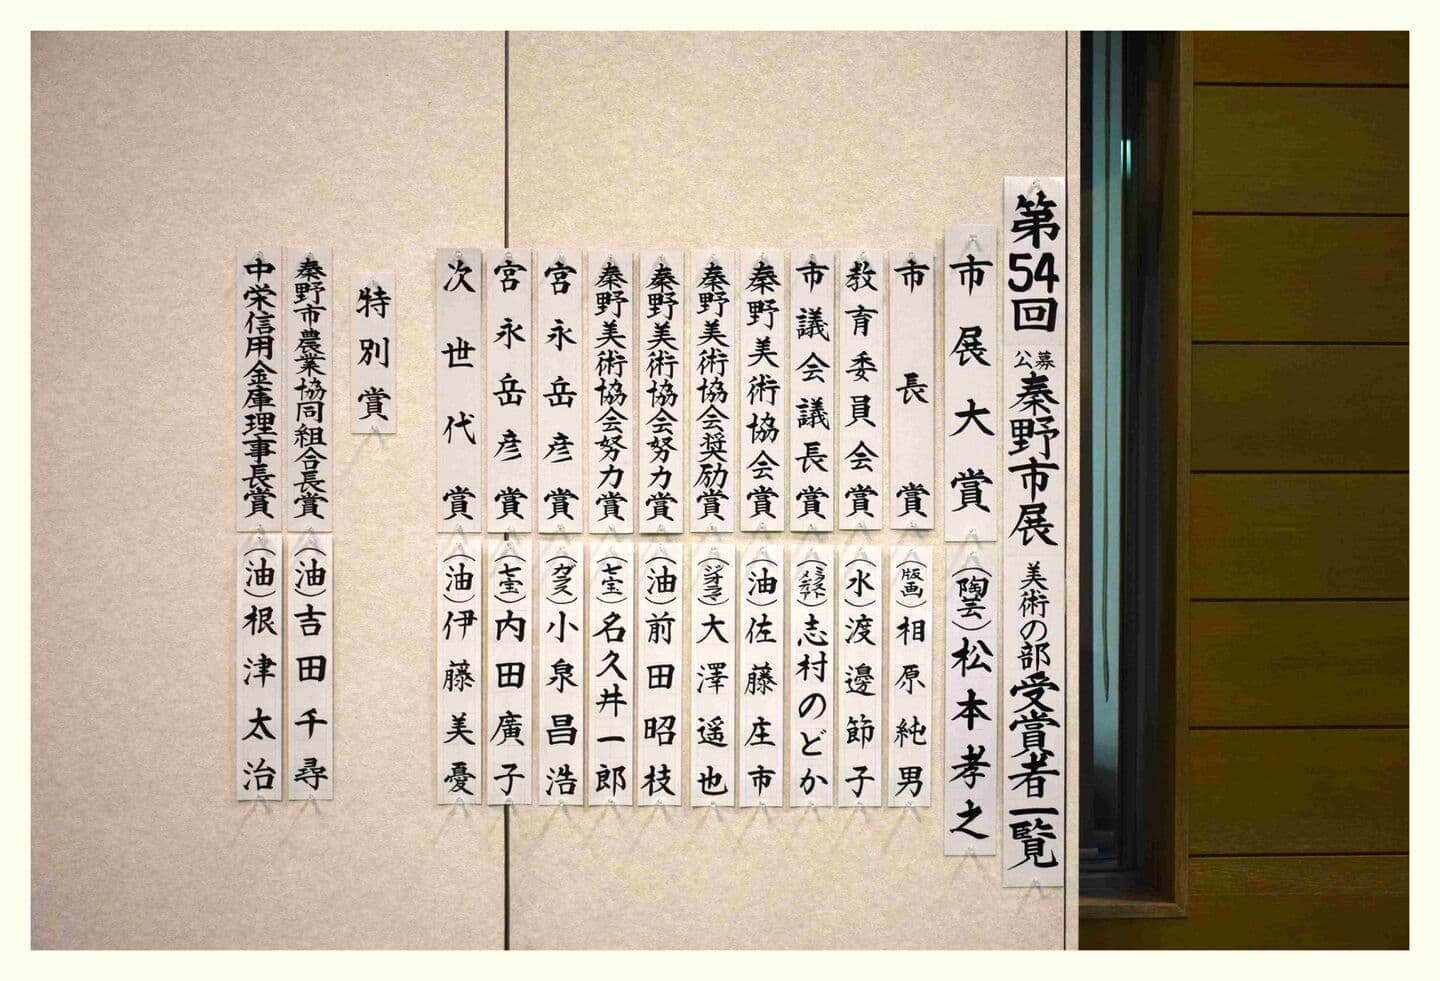 第54回 公募 秦野市展 美術の部 受賞者一覧
市展大賞 (陶芸) 松本孝之
市長賞 (版画) 相原純男
教育委員会賞 (水) 渡邊節子
市議会議長賞 (ミクストメディア) 志村のどか
秦野美術協会賞 (油) 佐藤庄市
秦野美術協会奨励賞 (ジオラマ) 大澤遥也
秦野美術協会努力賞 (油) 前田昭枝
秦野美術協会努力賞 (七宝) 名久井一郎
宮永岳彦賞 (ガラス) 小泉昌浩
宮永岳彦賞 (七宝) 内田廣子
次世代賞 (油) 伊藤美憂
特別賞
秦野市農業協同組合長賞 (油) 吉田千尋
中栄信用金庫理事長賞 (油) 根津太治